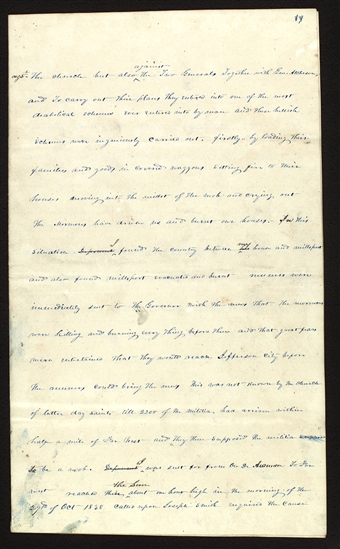 19
against
agst The church but also the Two Generals Together with Gen. Atchison,
and To carry out their plans they entire into one of the most
diabolical schemes ever entired into by man and these hellish
schemes was ingeniously carried out. firstly by loading their
families and goods in covered waggons setting fire to their
houses moving into the midst of the mob and crying out
the Mormons have driven us and burnt our houses. In this
situation I found the country between my house and millsport
and also found millsport evacuated and burnt runners were
immediately sent to the Governor with the news that the mormons
were killing and burning every thing before them and that great fears
were entertained that they would reach Jefferson City before
the runners could bring the news This was not known by the church
of latter day saints till 2200 of the militia has arrived within
half a mile of Far West and they then supposed the militia
to be a mob. I was sent for from On D. Aumon To Far
west reached there, the Sun about an hour high in the morning of the
29th of Oct 1838 called upon Joseph Smith enquired the cause